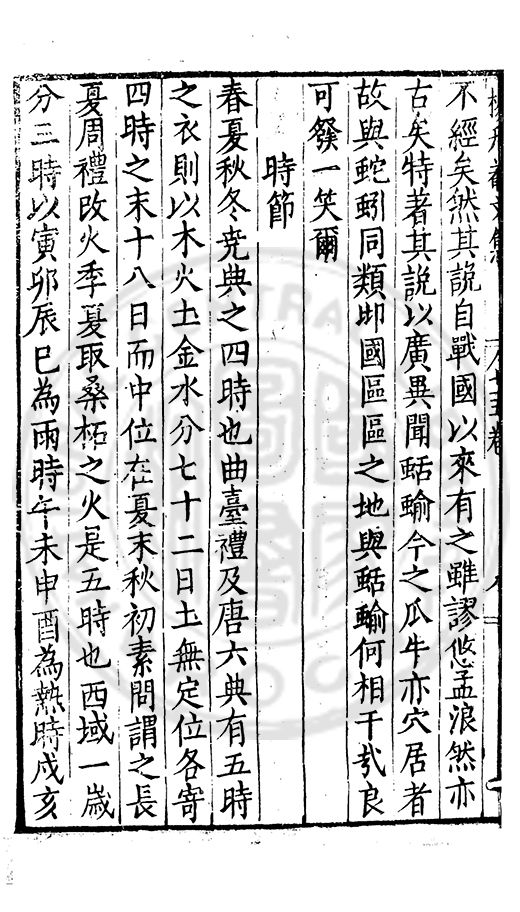 不經矣然其說自戰國以來有之雖謬悠孟浪然亦
古矣特著其說以廣異聞蛞蝓今之瓜牛亦穴居者
故與蛇蚓同類卹國區區之地與蛞蝓何相干㢤良
可發一笑爾
時節
春夏秋冬尭典之四時也曲臺禮及唐六典有五時
之衣則以木火土金水分七十二日土無定位各寄
四時之末十八日而中位在夏末秋初素問謂之長
夏周禮改火季夏取桑柘之火是五時也西域一嵗
分三時以寅卯辰巳為雨時午未申酉為熱時戍亥